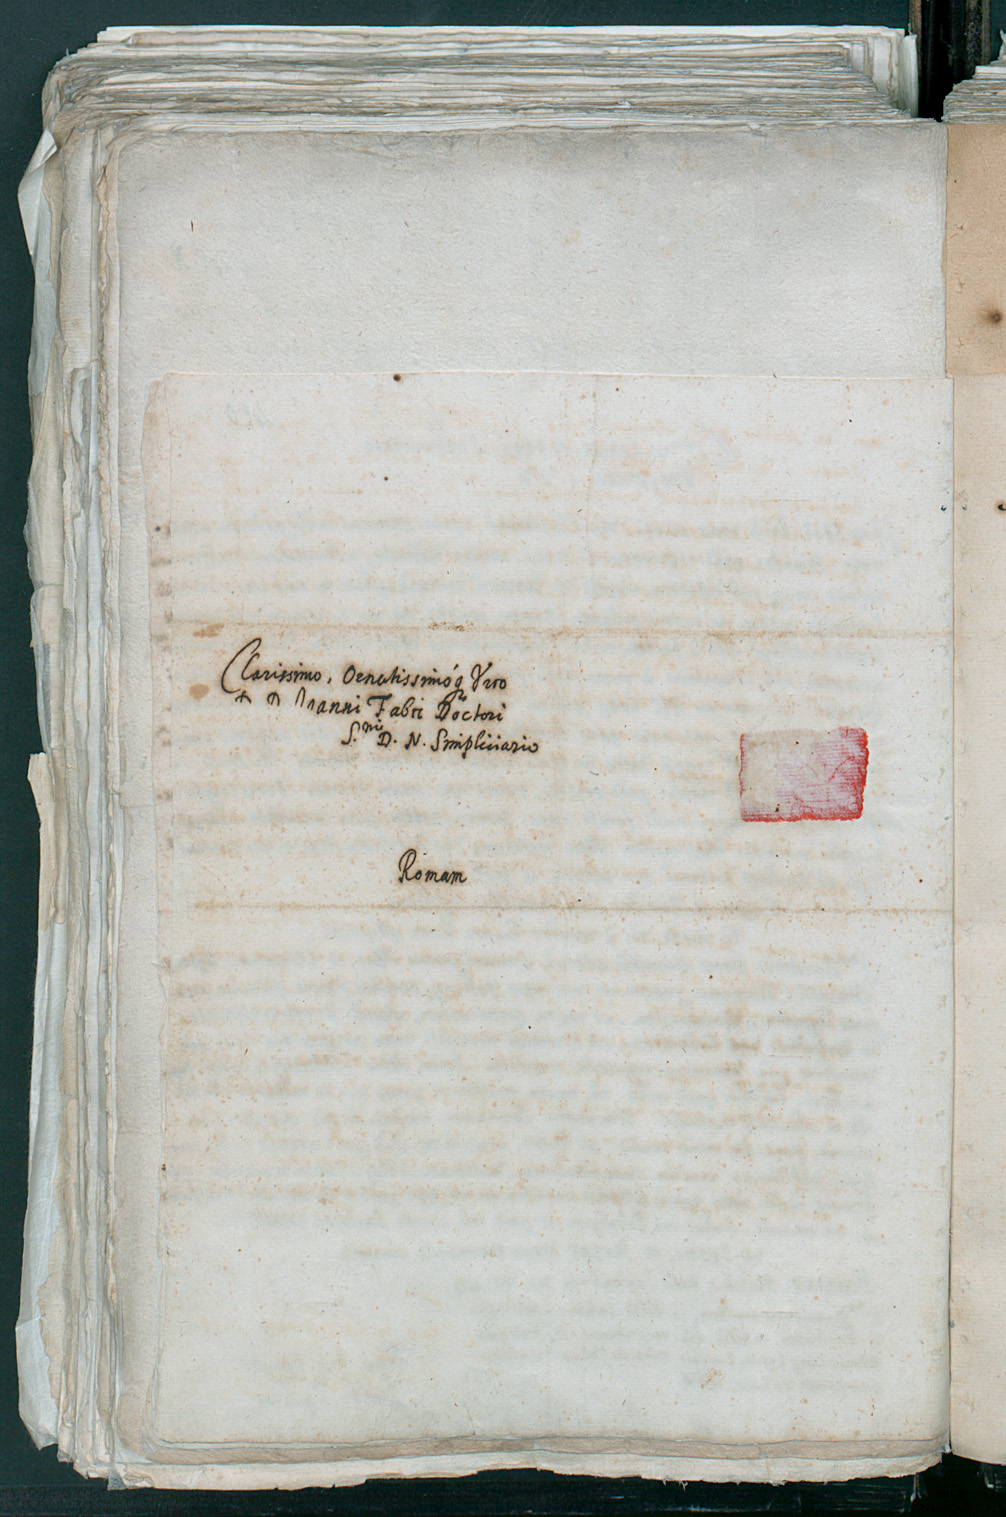 Clarissimo, Ornatissimóq Viro
D Joanni Fabri Doctori
S.mi D. N. Simpliciario
Romam